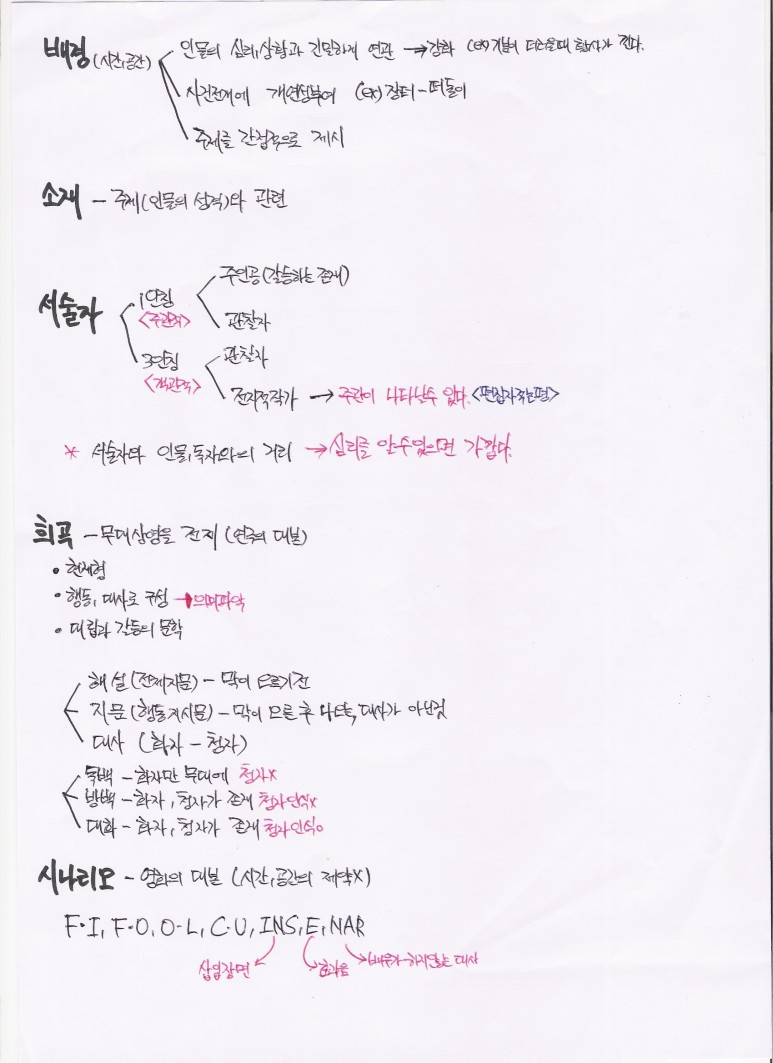 배경(시간,공간) 인물의 심리,상황과 긴밀하게 연관 → 강화 (ex) 기분이 더러운데 행사가 진다.
사건전개에 개연성부여 (ex) 장터 - 떠돌이
주제를 간접적으로 제시
소재 - 주제(인물의 성격)와 관련
서술자
1인칭 <주관적>
주인공(갈등하는 존재)
관찰자
3인칭 <객관적>
관찰자
전지적작가 → 주관이 나타날수 있다. <편집자적논평>
* 서술자와 인물,독자와의 거리 → 심리를 알수있으면 가깝다.
희곡 - 무대상영을 전제 (연극의 대본)
• 현재형
• 행동, 대사로 구성 → 의미파악
• 대립과 갈등의 문학
해설 (전제지문) - 막이 오르기전
지문 (행동지시문) - 막이 오른 후 나오는, 대사가 아닌것
대사 (화자 - 청자)
독백 - 화자만 무대에 청자x
방백 - 화자, 청자가 존재 청자인식x
대화 - 화자, 청자가 존재 청자인식o
시나리오 - 영화의 대본 (시간,공간의 제약x)
F·I, F·O, O·L, C·U, INS, E, NAR
삽입장면 효과음 배우가 하지않는 대사